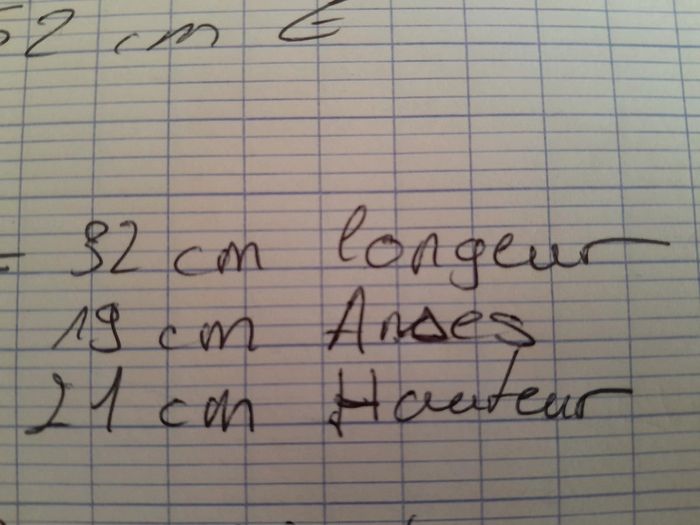 52 cm E
- 32 cm longeur
19 cm Anses
21 cm Hauteur